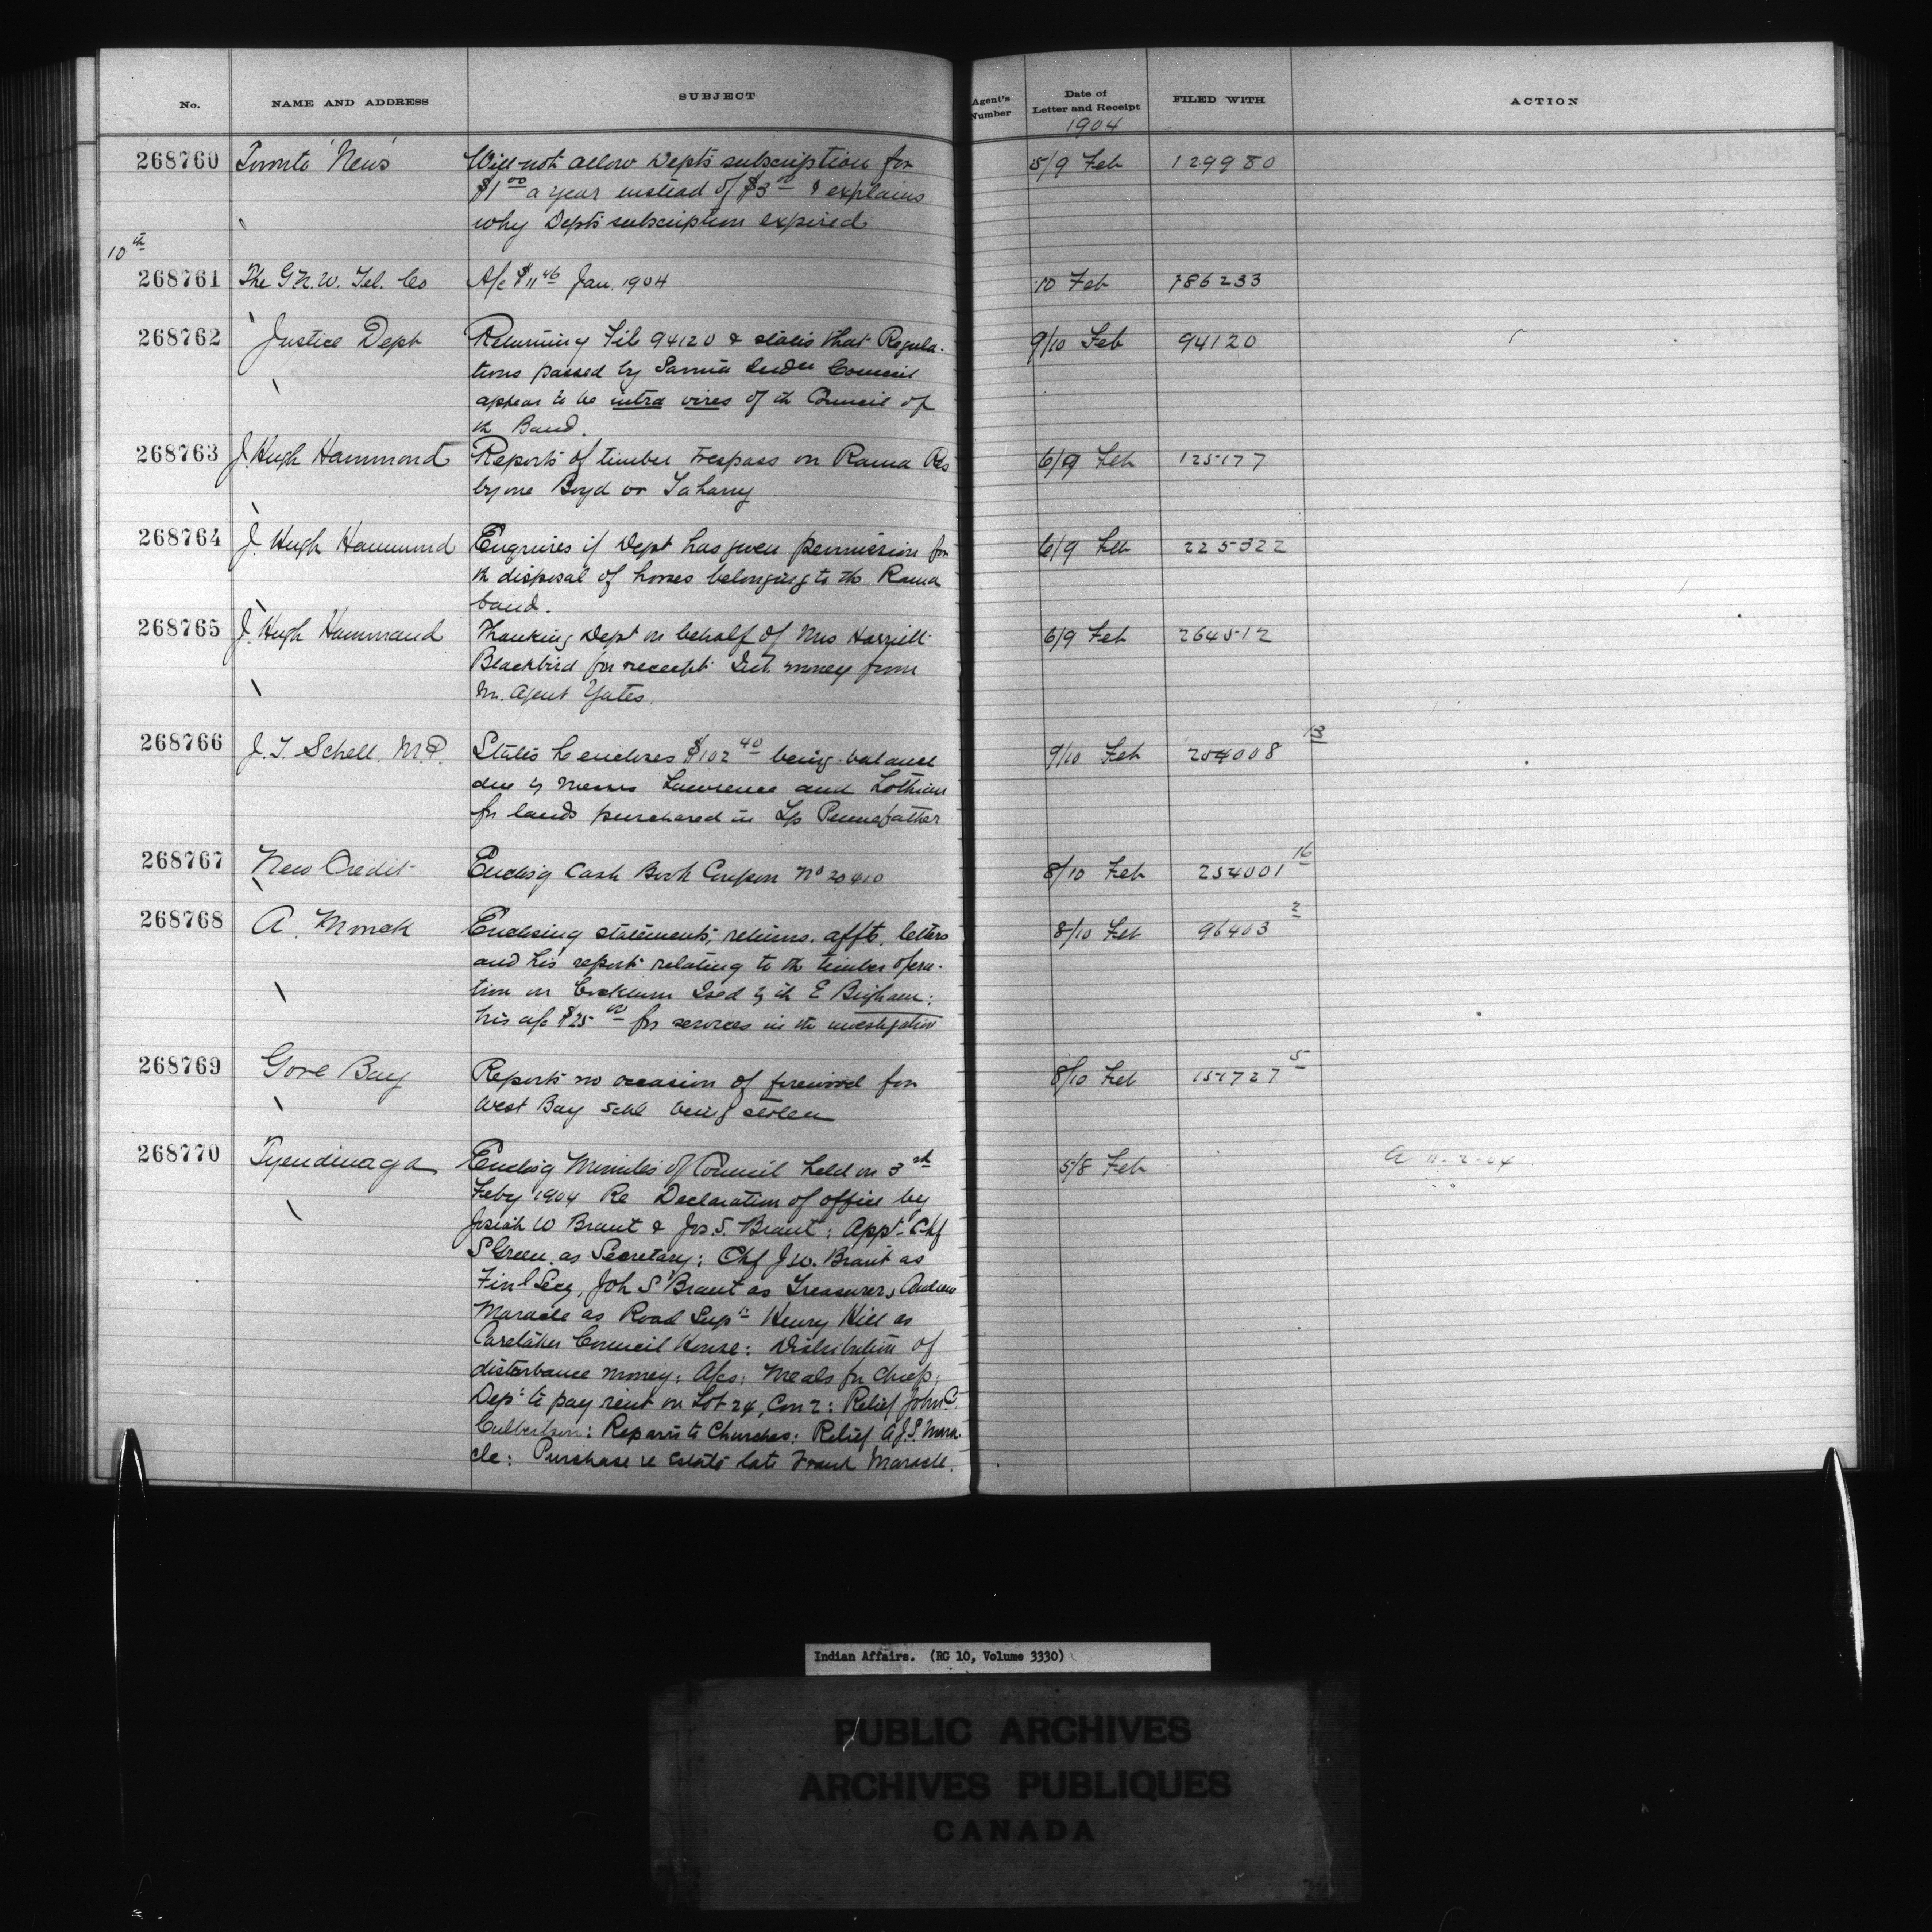 No. NAME AND ADDRESS SUBJECT Agent's Number Date of Letter and Receipt FILED WITH ACTION
1904
268760 Toronto 'News' Will not allow Dept's subscription for 5/9 Feb 129980
$1 00 a year instead of $3 00 & explains
why Dept's subscription expired
10th
268761 The G.N.W. Tel. Co A/c $11 46 Jan. 1904 10 Feb 186233
268762 Justice Dept Returning File 94120 & states that Regula- 9/10 Feb 94120
tions passed by Sarnia Indn Council
appear to be intra vires of th Council of
th Band.
268763 J. Hugh Hammond Reports of timber trespass on Rama Res 6/9 Feb 125177
by one Boyd or
268764 J. Hugh Hammond Enquires if Dept has given permission for 6/9 Feb 225322
th disposal of horses belonging to th Rama
band.
268765 J. Hugh Hammond Thanking Dept on behalf of Mrs Harriett 6/9 Feb 264512
Blackbird for receipt Int. money from
Mr. Agent Yates.
268766 J. T. Schell. M.P. States he encloses $102 40 being balance 9/10 Feb 204008 13
due by Messrs Lawrence and Lothian
for lands purchased in Tp Pennefather
268767 New Credit Enclos'g Cash Book Coupon No 20410 8/10 Feb 254001 16
268768 A. Enclosing statements, returns. affts. letters 8/10 Feb 96403 2
and his report relating to th timber opera-
tion on Cockburn Isld by th E Brigham:
his a/c $25 00 for services in th investigation
268769 Gore Bay Reports no occasion of firewood for 8/10 Feb 151727 5
West Bay Schl being stolen
268770 Tyendinaga Enclos'g Minutes of Council held on 3rd 5/8 Feb A 11-2-04
Feby 1904 Re Declaration of office by
Josiah W Brant & Jos S. Brant: Appt. Chf
S Green as Secretary: Chf J.W. Brant as
Fin'l Secy, Joh S Brant as Treasurer, Andrew
Maracle as Road Supt Henry Hill as
Caretaker Council House: Distribution of
disturbance money: A/cs: Meals for Chiefs:
Dept to pay rent on Lot 24, Con 2: Relief John C.
Culbertson: Repairs to Churches: Relief A.J.S. Mara-
cle: Purchase re Estate late Frank Maracle.
Indian Affairs. (RG 10, Volume 3330)
PUBLIC ARCHIVES
ARCHIVES PUBLIQUES
CANADA